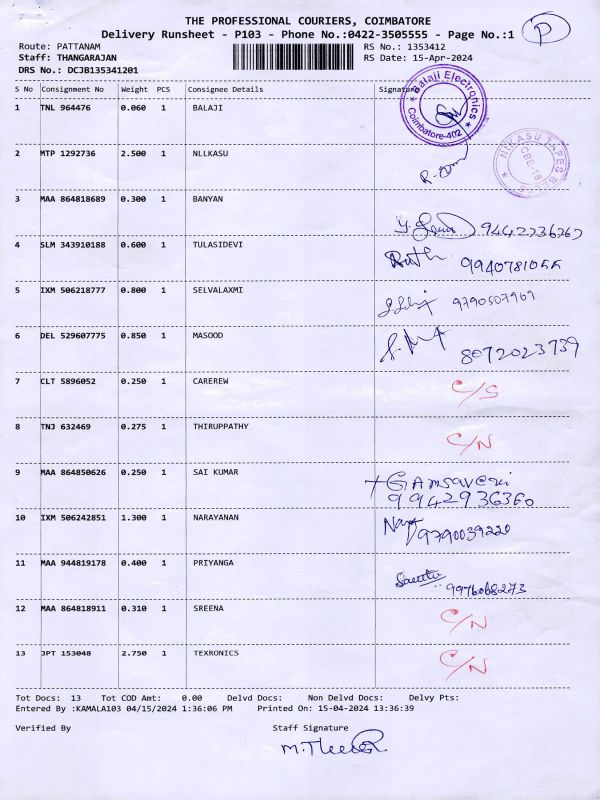 THE PROFESSIONAL COURIERS, COIMBATORE
Delivery Runsheet - P103 - Phone No.:0422-3505555 - Page No.:1 P
Route: PATTANAM RS No.: 1353412
Staff: THANGARAJAN RS Date: 15-Apr-2024
DRS No.: DCJB135341201
S No Consignment No Weight PCS Consignee Details Signature
1 TNL 964476 0.060 1 BALAJI Balaji Electronics Coimbatore-402
2 MTP 1292736 2.500 1 NLLKASU NIKASU TAPES CBE-18
3 MAA 864818689 0.300 1 BANYAN 9442236767
4 SLM 343910188 0.600 1 TULASIDEVI Ruth 9940781055
5 IXM 506218777 0.800 1 SELVALAXMI 9790507969
6 DEL 529607775 0.850 1 MASOOD 8072023739
7 CLT 5896052 0.250 1 CAREREW C/S
8 TNJ 632469 0.275 1 THIRUPPATHY C/N
9 MAA 864850626 0.250 1 SAI KUMAR
9942936360
10 IXM 506242851 1.300 1 NARAYANAN 9790039220
11 MAA 944819178 0.400 1 PRIYANGA 9976068273
12 MAA 864818911 0.310 1 SREENA C/N
13 JPT 153048 2.750 1 TEXRONICS C/N
Tot Docs: 13 Tot COD Amt: 0.00 Delvd Docs: Non Delvd Docs: Delvy Pts:
Entered By :KAMALA103 04/15/2024 1:36:06 PM Printed On: 15-04-2024 13:36:39
Verified By Staff Signature